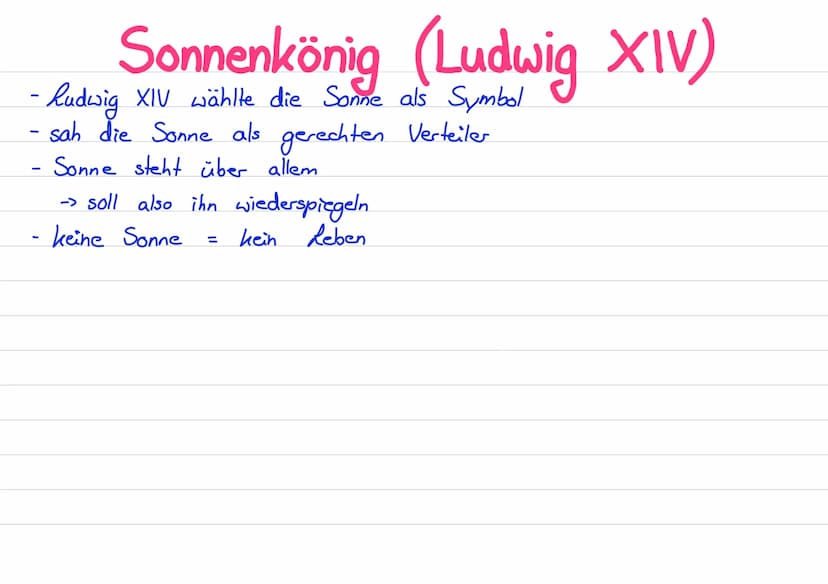 Sonnenkönig (Ludwig XIV)
- Ludwig XIV wählte die Sonne als Symbol
- sah die Sonne als gerechten Verteiler
- Sonne steht über allem
-> soll also ihn wiederspiegeln
- keine Sonne = kein Leben